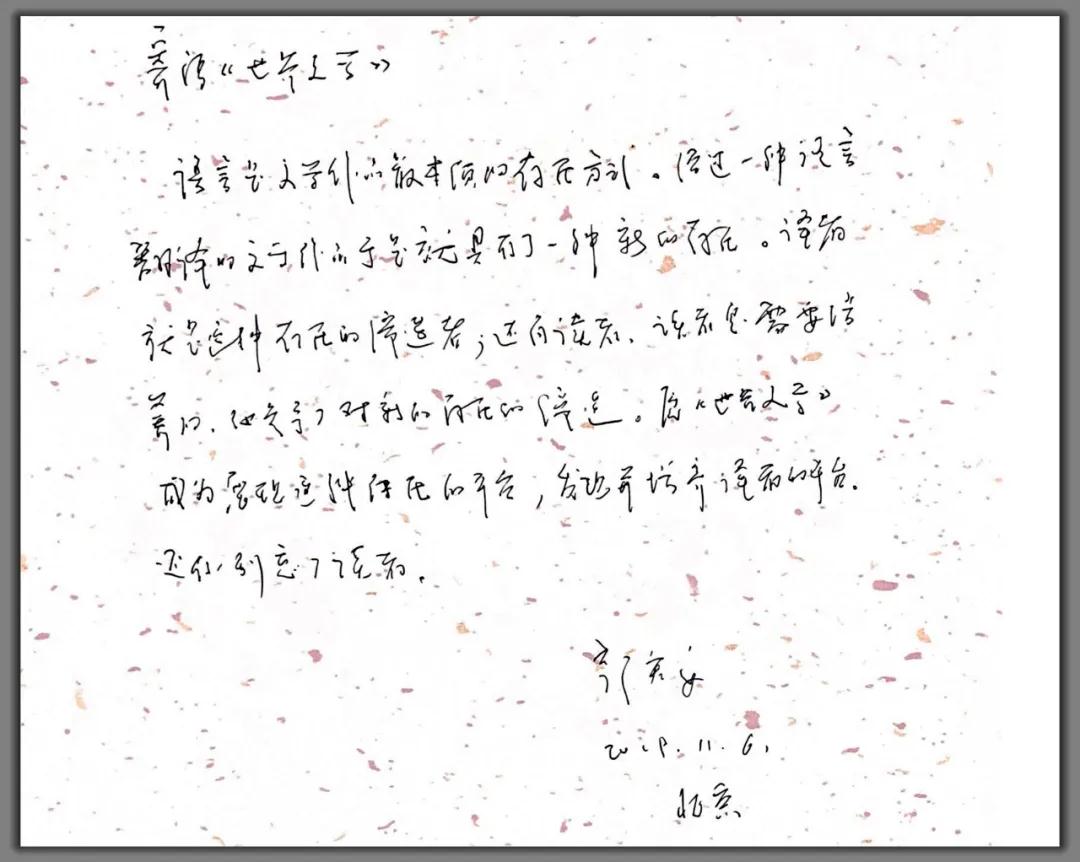 寄语《世界文学》
语言是文学作品最本质的存在方式。经过一种语言
翻译的文学作品于是就具有了一种新的存在。译者
就是这种存在的缔造者；还有读者，读者是需要培
养的，他参与了对新的存在的缔造。愿《世界文学》
成为展现这种存在的平台，发现并培养译者的平台。
还有，别忘了读者。
北京